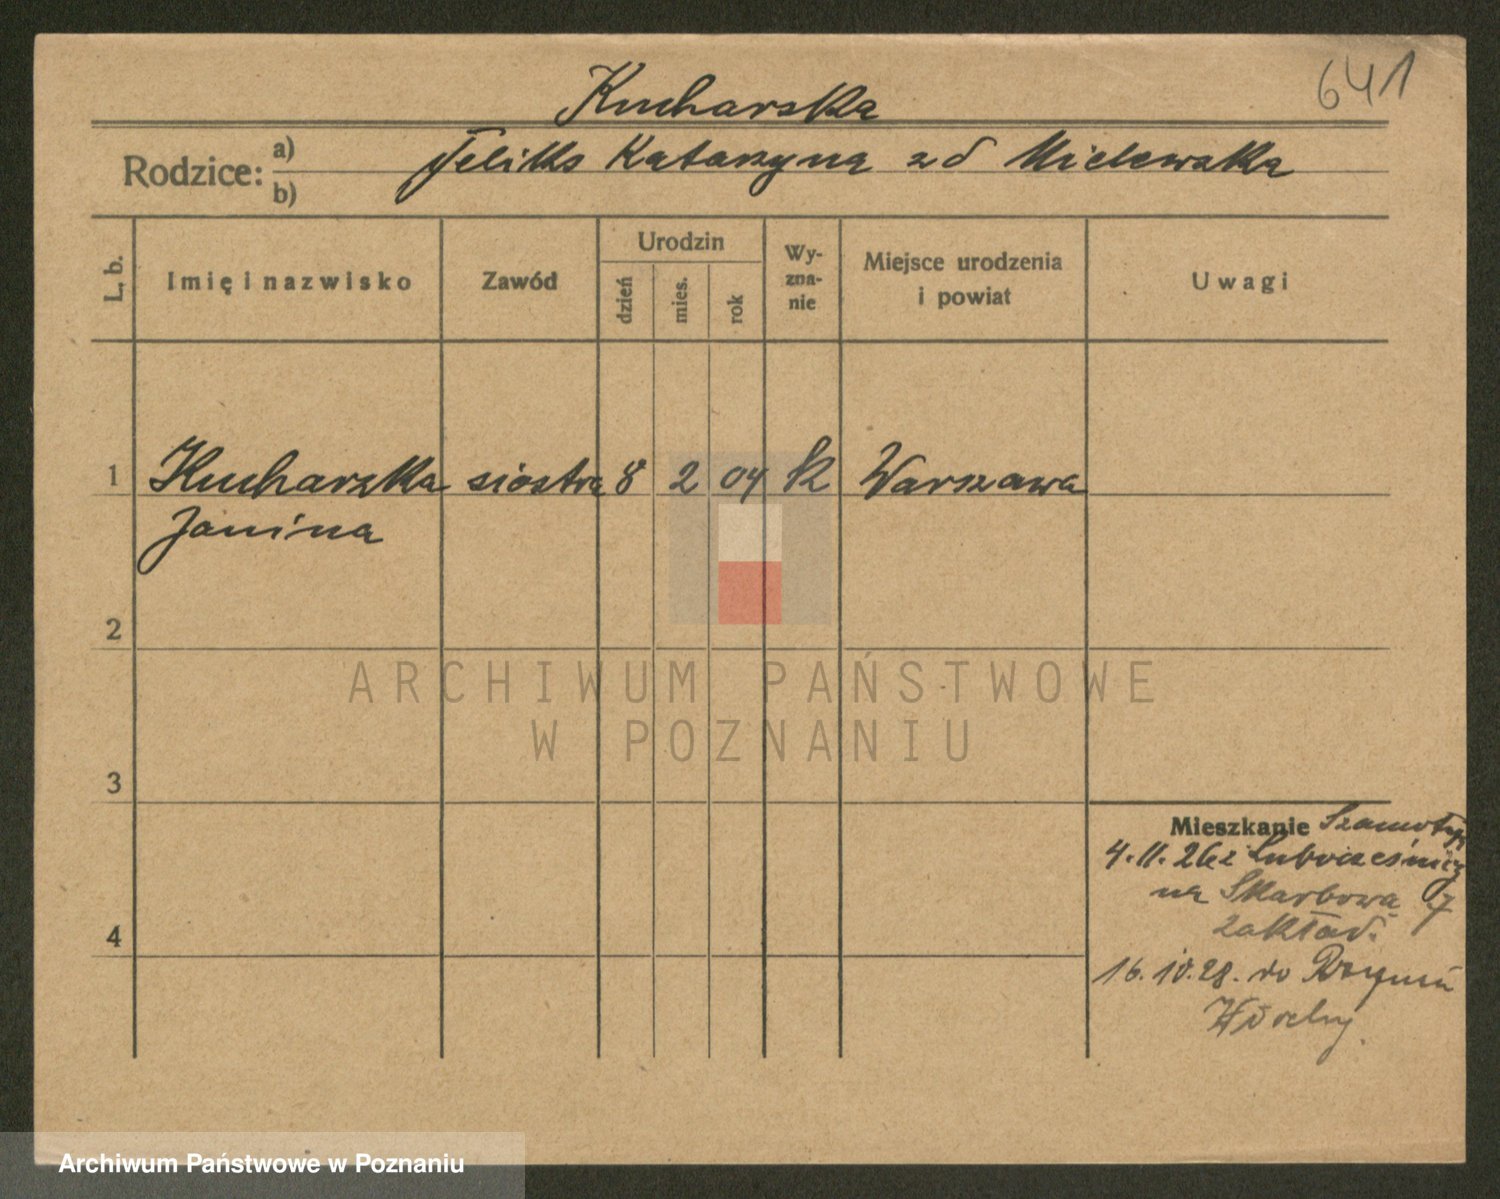 641
Kucharska
Rodzice: a) Feliks Katarzyna zd Mielewska
b)
L. b. Imię i nazwisko Zawód Urodzin dzień mies. rok Wy-zna-nie Miejsce urodzenia i powiat Uwagi
1 Kucharska siostra 8 2 04 k Warszawa
Janina
2
ARCHIWUM PAŃSTWOWE
W POZNANIU
3
Mieszkanie Szamotuły
4.11.26 z
na Skarbowa 7
zakład.
4
16.10.28. do Rzymu
Włochy.
Archiwum Państwowe w Poznaniu